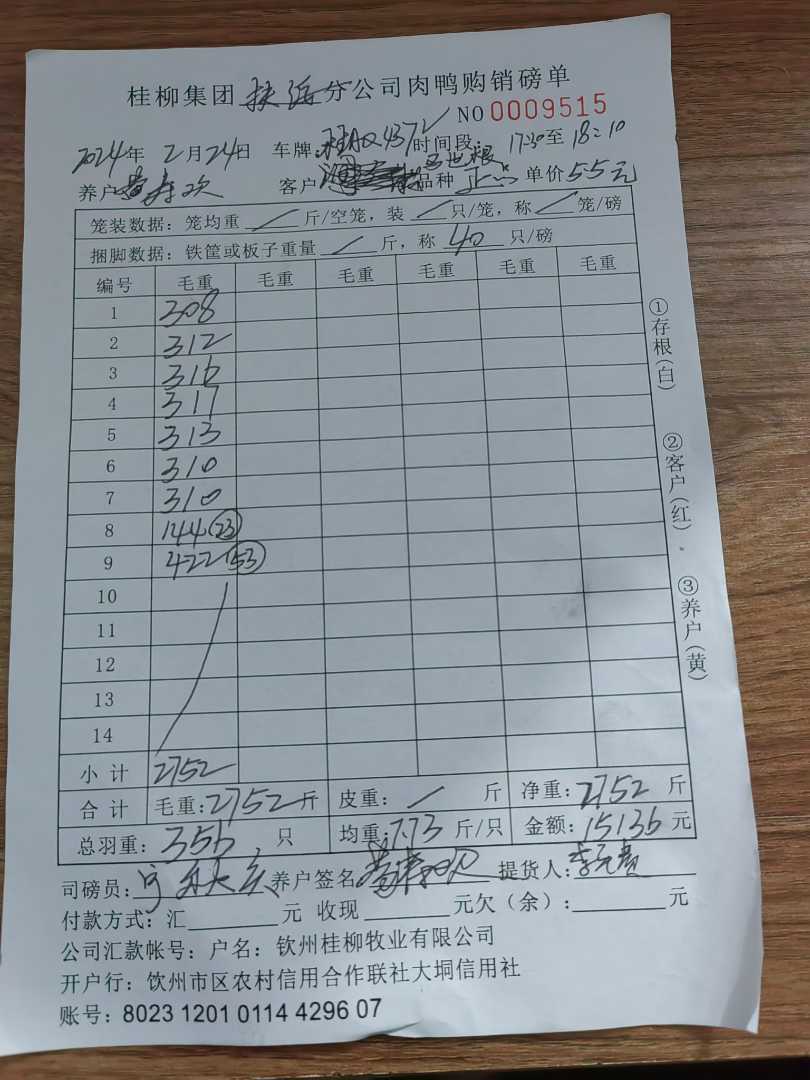 桂柳集团 分公司肉鸭购销磅单
NO 0009515
2024年 2月24日 车牌: 桂 4372 时间段: 17:30至 18:10
养户 黄 欢 客户 品种 正品 单价 5.5元
笼装数据: 笼均重 / 斤/空笼, 装 / 只/笼, 称 / 笼/磅
捆脚数据: 铁筐或板子重量 / 斤, 称 40 只/磅
编号 毛重 毛重 毛重 毛重 毛重 毛重
1 308
2 312
3 316
4 317
5 313
6 310
7 310
8 144 (23)
9 422 (53)
10
11
12
13
14
小计 2752
合计 毛重: 2752 斤 皮重: / 斤 净重: 2752 斤
总羽重: 356 只 均重: 7.73 斤/只 金额: 15136 元
司磅员: 养户签名 黄 欢 提货人: 李
付款方式: 汇 元 收现 元欠(余): 元
公司汇款帐号: 户名: 钦州桂柳牧业有限公司
开户行: 饮州市区农村信用合作联社大垌信用社
账号: 8023 1201 0114 4296 07
①存根(白)
②客户(红)
③养户(黄)